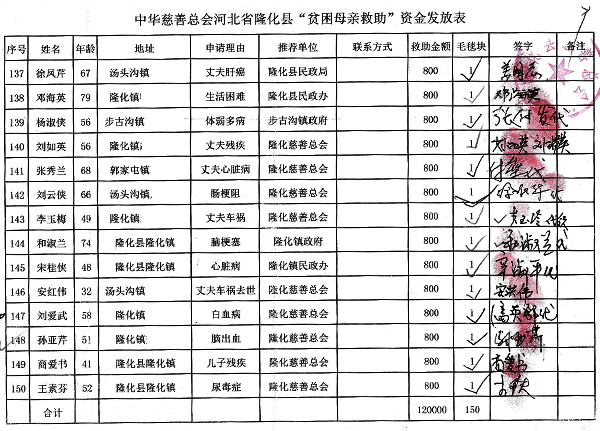 中华慈善总会河北省隆化县“贫困母亲救助”资金发放表
序号 姓名 年龄 地址 申请理由 推荐单位 联系方式 救助金额 毛毯块 签字 备注
137 徐凤芹 67 汤头沟镇 丈夫肝癌 隆化县民政局 800 1
138 邓海英 79 隆化镇 生活困难 隆化县民政办 800 1
139 杨淑侠 56 步古沟镇 体弱多病 步古沟镇政府 800 1
140 刘如英 56 隆化镇 丈夫残疾 隆化慈善总会 800 1
141 张秀兰 68 郭家屯镇 丈夫心脏病 隆化慈善总会 800 1
142 刘云侠 66 汤头沟镇 肠梗阻 隆化慈善总会 800 1
143 李玉梅 49 隆化镇 丈夫车祸 隆化慈善总会 800 1
144 和淑兰 74 隆化县隆化镇 脑梗塞 隆化镇政府 800 1
145 宋桂侠 48 隆化县隆化镇 心脏病 隆化镇民政办 800 1
146 安红伟 32 汤头沟镇 丈夫车祸去世 隆化慈善总会 800 1
147 刘爱武 58 隆化镇 白血病 隆化慈善总会 800 1
148 孙亚芹 51 隆化镇 脑出血 隆化慈善总会 800 1
149 商爱书 41 隆化县隆化镇 儿子残疾 隆化慈善总会 800 1
150 王素芬 52 隆化县隆化镇 尿毒症 隆化慈善总会 800 1
合计 120000 150